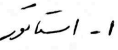 ۱- استاتور